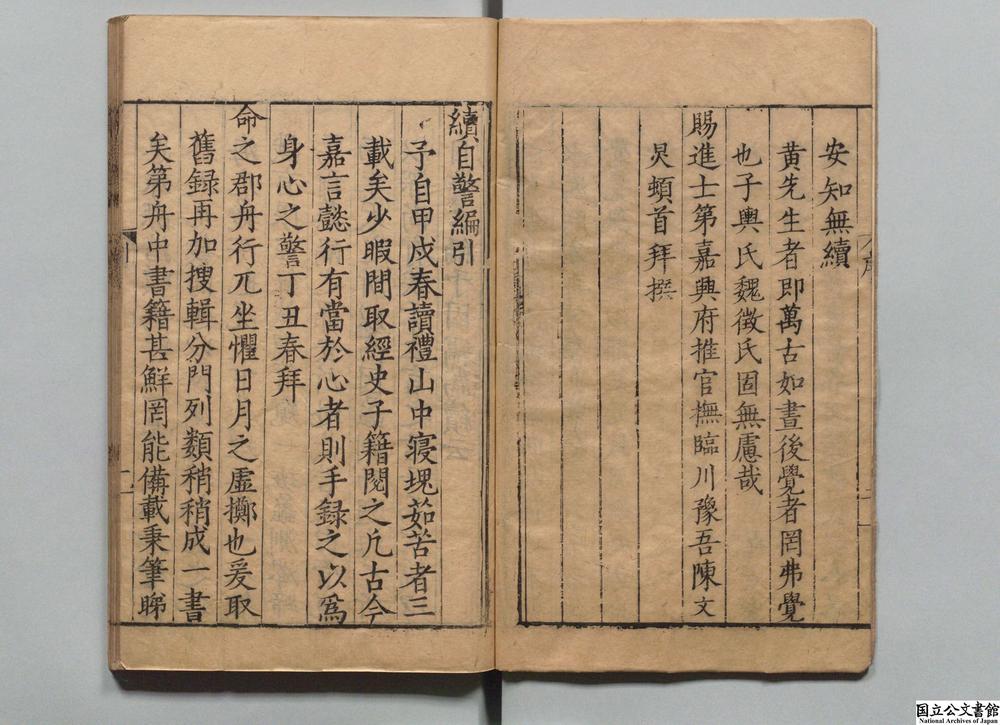 安知無續
黄先生者即萬古如晝後覺者罔弗覺
也子輿氏魏徴氏固無慮哉
賜進士第嘉興府推官撫臨川豫吾陳文
炅頓首拜撰
續自警編引
予自甲戌春讀禮山中寢塊茹苦者三
載矣少暇間取經史子籍閱之凢古今
嘉言懿行有當於心者則手録之以爲
身心之警丁丑春拜
命之郡舟行兀坐懼日月之虛擲也爰取
舊録再加搜輯分門列類稍稍成一書
矣第舟中書籍甚鮮罔能備載秉筆睇
二
国立公文書館
National Archives of Japan